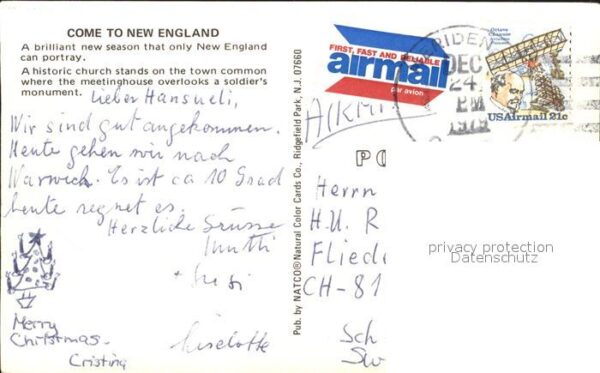 COME TO NEW ENGLAND
A brilliant new season that only New England
can portray.
A historic church stands on the town common
where the meetinghouse overlooks a soldier's
monument.
Lieber Hansueli,
Wir sind gut angekommen.
Heute gehen wir nach
Warwick. Es ist ca 10 Grad
heute regnet es.
Herzliche Grüsse
Mutti
+ Susi
Liselotte
Merry
Christmas.
Cristina
Pub. by NATCO®Natural Color Cards Co., Ridgefield Park, N.J. 07660
FIRST, FAST AND RELIABLE
airmail
par avion
AIRM
RIDEN
DEC
24
PM
1979
Octave
Chanute
Aviation
Pioneer
USAirmail 21c
PO
Herrn
H.U. R
Fliede
CH-81
Sch
Sw
privacy protection
Datenschutz